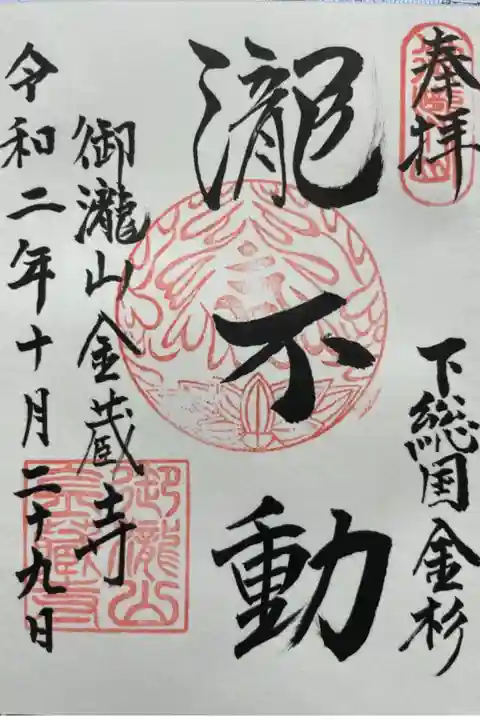 奉拝
下総国金杉
瀧不動
御瀧山金蔵寺
令和二年十月二十九日
御瀧山
金蔵寺